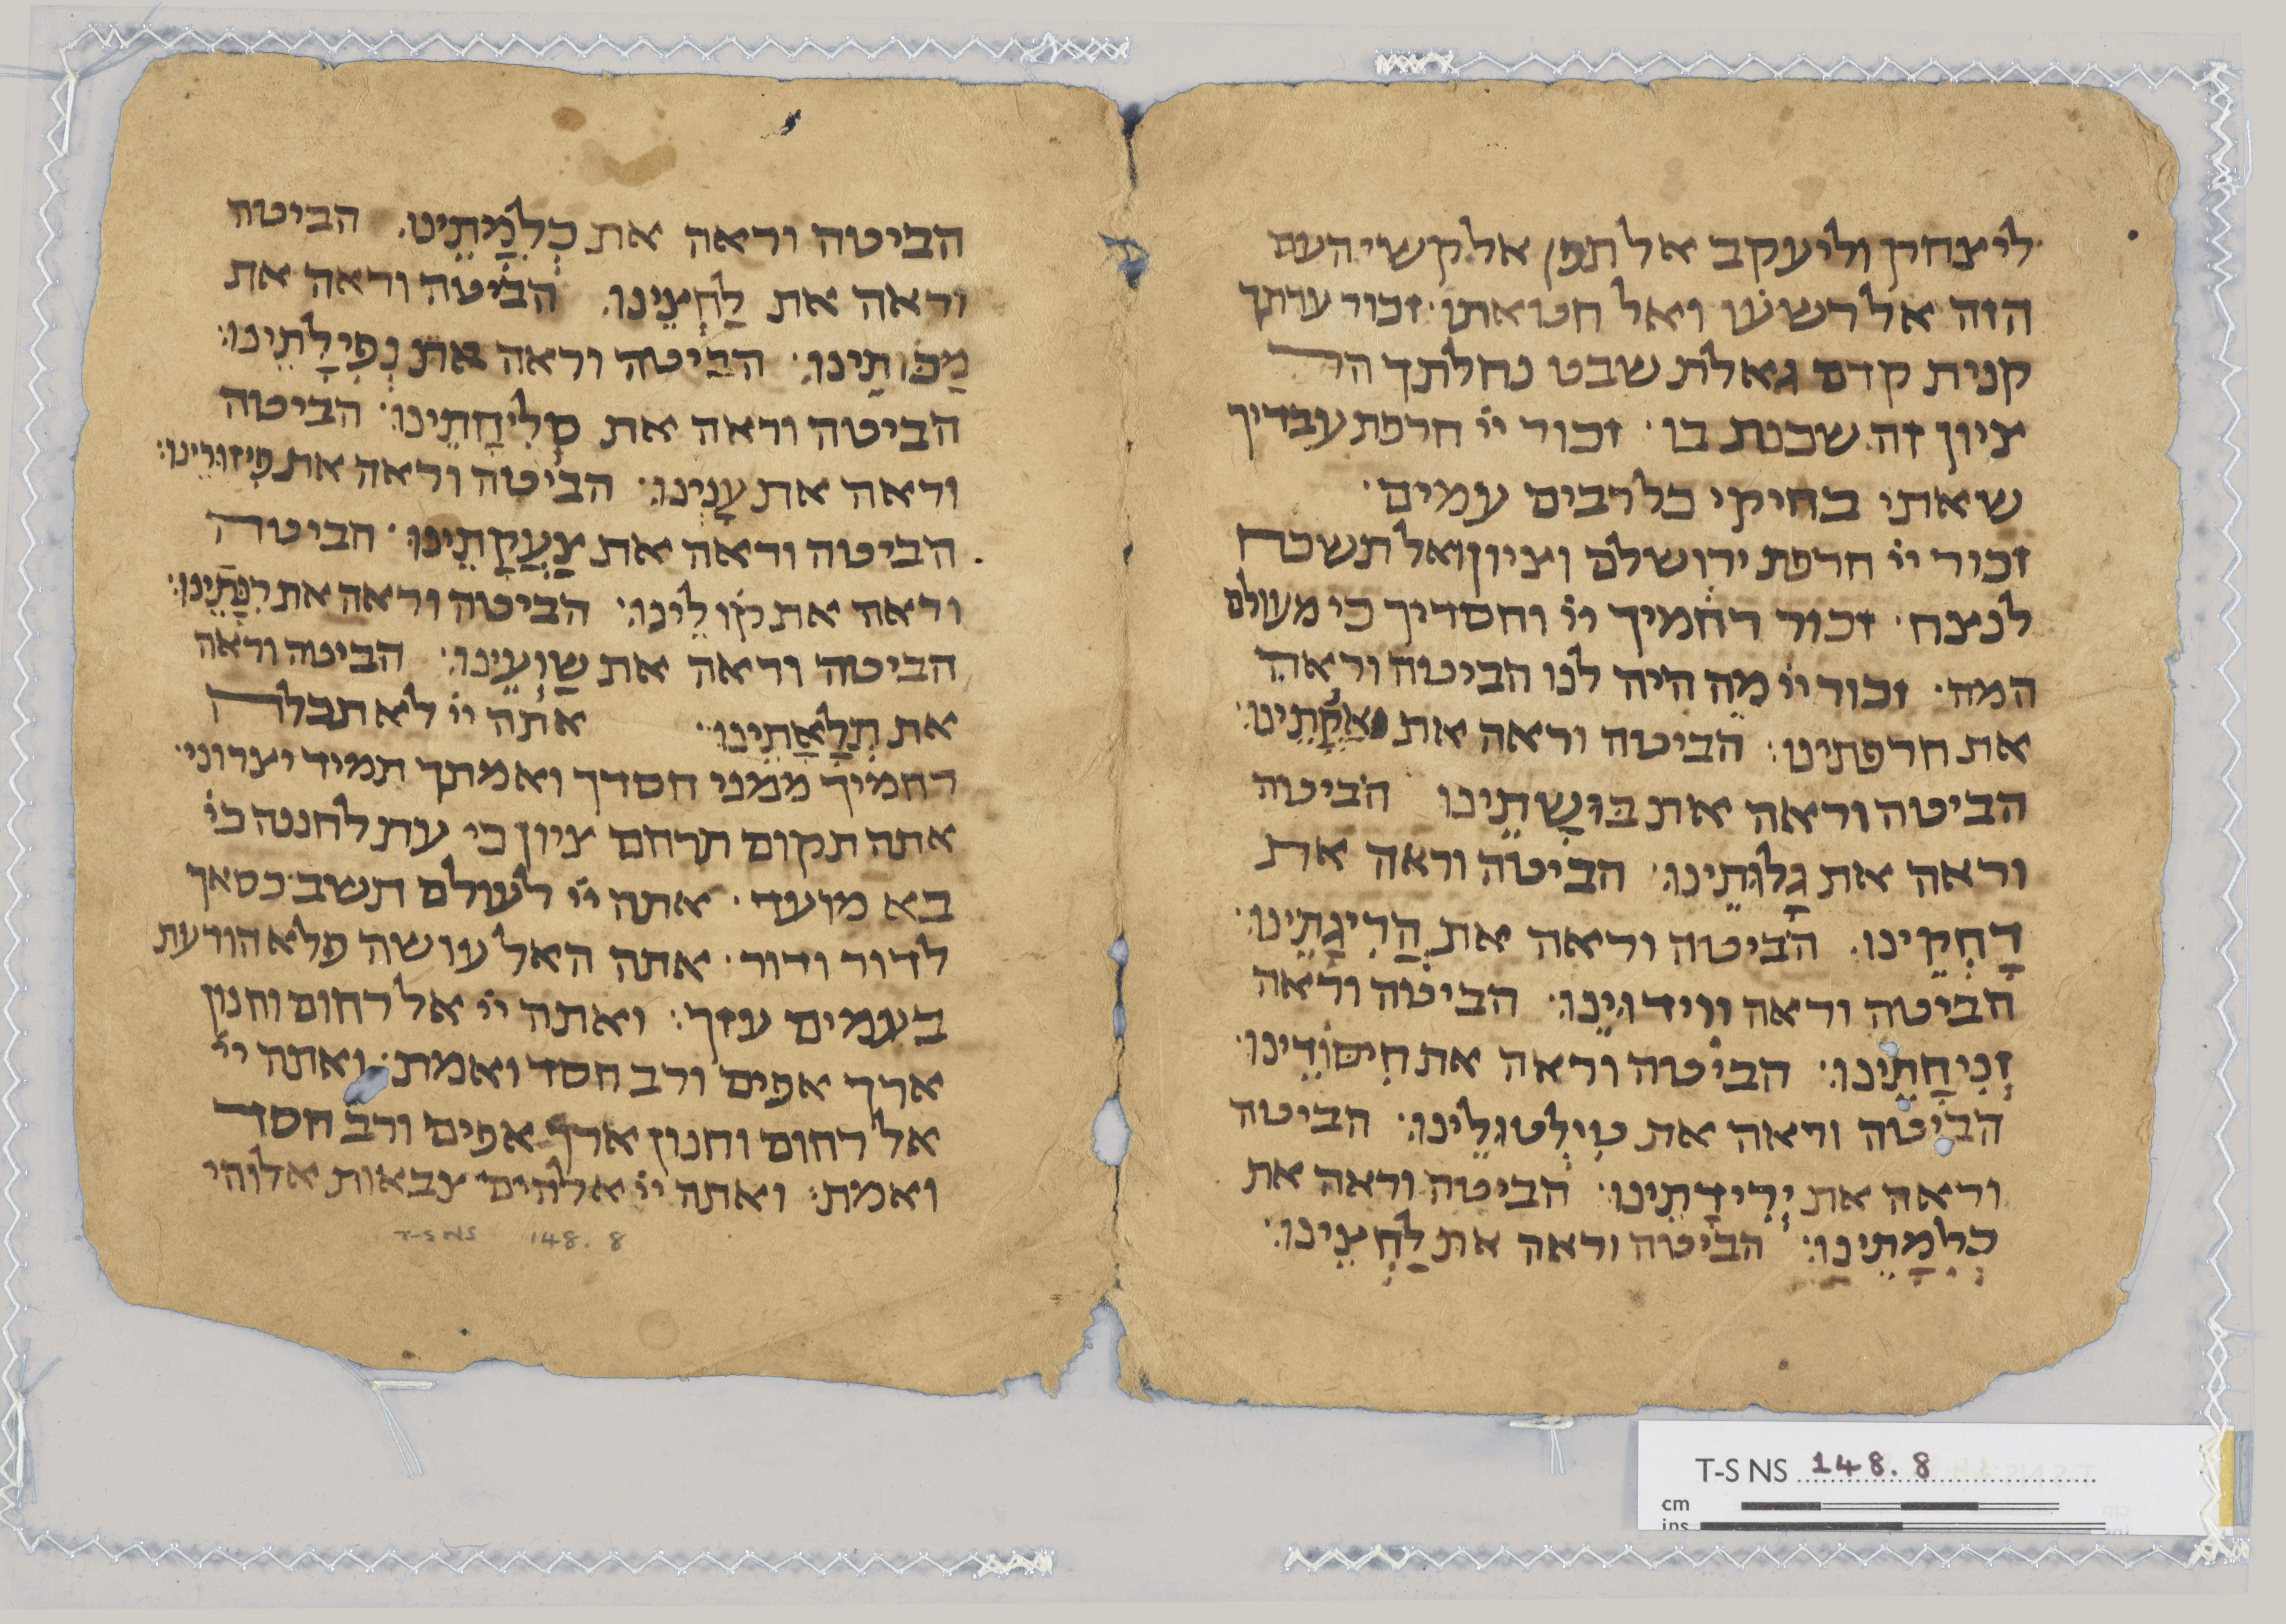 ליצחק וליעקב אל תפן אל קשי העם
הזה אל רשעו ואל חטאתו· זכור עדתך
קנית קדם גאלת שבט נחלתך הר
ציון זה שכנת בו· זכור ייי חרפת עבדיך
שאתי בחיקי כל רבים עמים·
זכור ייי חרפת ירושלם וציון ואל תשכח
לנצח· זכור רחמיך ייי וחסדיך כי מעולם
המה· זכור ייי מה היה לנו הביטה וראה
את חרפתינו: הביטה וראה את
הביטה וראה את בּוּשָׁתֵינו הביטה
וראה את גָלוּתֵינוּ· הביטה וראה את
דָחְקֵינו· הביטה וראה את הֲרִיגָתֵינוּ·
הביטה וראה ווידוּיֵנוּ· הביטה וראה
זְנִיחָתֵינוּ· הביטה וראה את חִיסּוֹרֵינוּ·
הביטה וראה את טִילְטוּלֵינוּ· הביטה
וראה את יְרִידָתֵינוּ· הביטה וראה את
כְּלִמָתֵינוּ: הביטה וראה את לַחְצֵינוּ·
הביטה וראה את כְלִמָתֵינו· הביטה
וראה את לַחְצֵינוּ· הביטה וראה את
מַכּוֹתֵינוּ· הביטה וראה את נְפִילָתֵינוּ·
הביטה וראה את סְלִיחָתֵינוּ· הביטה
וראה את עָנְיֵנוּ· הביטה וראה את פִיזּוּרֵינוּ·
הביטה וראה את צַעֲקָתֵינוּ· הביטה
וראה את קוֹלֵינוּ· הביטה וראה את רִנָּתֵינוּ·
הביטה וראה את שַוְעֵינוּ· הביטה וראה
את תְלָאָתֵינוּ· אתה ייי לא תכלה
רחמיך ממני חסדך ואמתך תמיד יצרוני·
אתה תקום תרחם ציון כי עת לחננה כי
בא מועד· אתה ייי לעולם תשב כסאך
לדור ודור· אתה האל עושה פלא הודעת
בעמים עזך: ואתה ייי אל רחום וחנון
ארך אפים ורב חסד ואמת· ואתה ייי
אל רחום וחנון ארך אפים ורב חסד
ואמת: ואתה ייי אלהים צבאות אלוהי
T-S NS 148.8
T-S NS 148.8
cm
ins